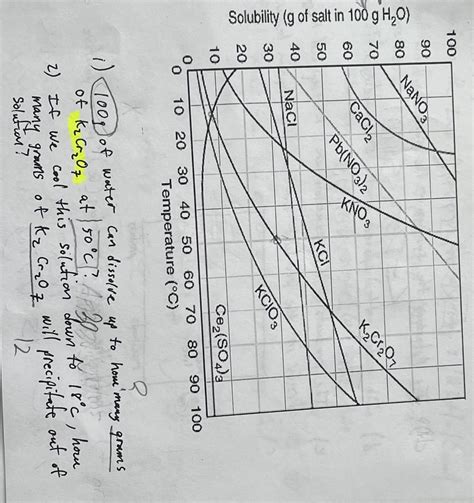 Solubility (g of salt in 100 g H₂O)
100
90
80
70
60
50
40
30
20
10
0
0 10 20 30 40 50 60 70 80 90 100
Temperature (°C)
NaNO₃
CaCl₂
Pb(NO₃)₂
KNO₃
NaCl
KCl
K₂Cr₂O₇
KClO₃
Ce₂(SO₄)₃
1) 100g of water can dissolve up to how many grams
of K₂Cr₂O₇ at 50°C?
2) If we cool this solution down to 18°C, how
many grams of K₂Cr₂O₇ will precipitate out of
solution?
12